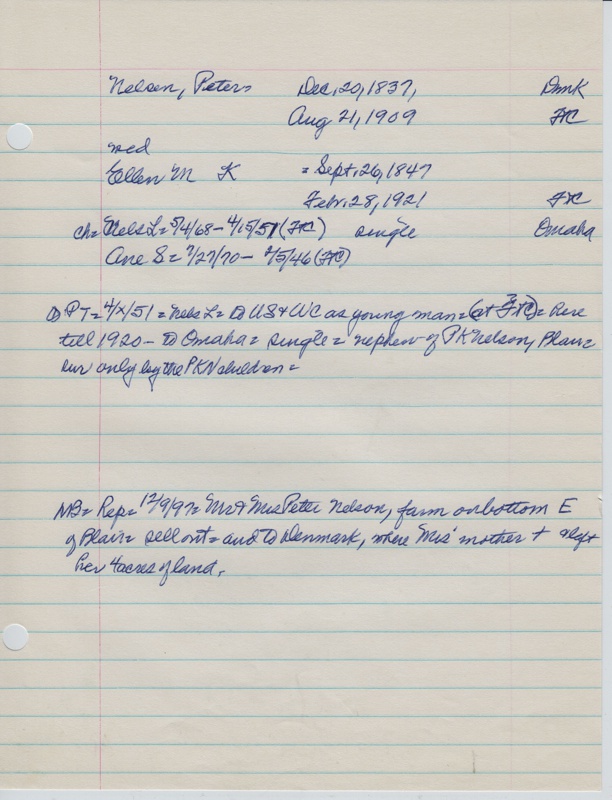 Nelson, Peter Dec, 20, 1837, Dmk
Aug 21, 1909 FC
med
Ellen M K = Sept, 26, 1847
Febr. 28, 1921 FC
ch = Nels L = 5/4/68 - 4/15/51 (FC) single Omaha
Ane S = 7/27/70 - 2/5/46 (FC)
PT = 4/x/51 = Nels L = to US & WC as young man = (at FC) = here
till 1920 - to Omaha = single = nephew of PK Nelson, Blair =
sur only by the PKN children =
MB = Rep = 12/9/97 = Mr & Mrs Peter Nelson, farm on bottom E
of Blair = sell out = and to Denmark, where Mrs' mother + & left
her 4 acres of land,